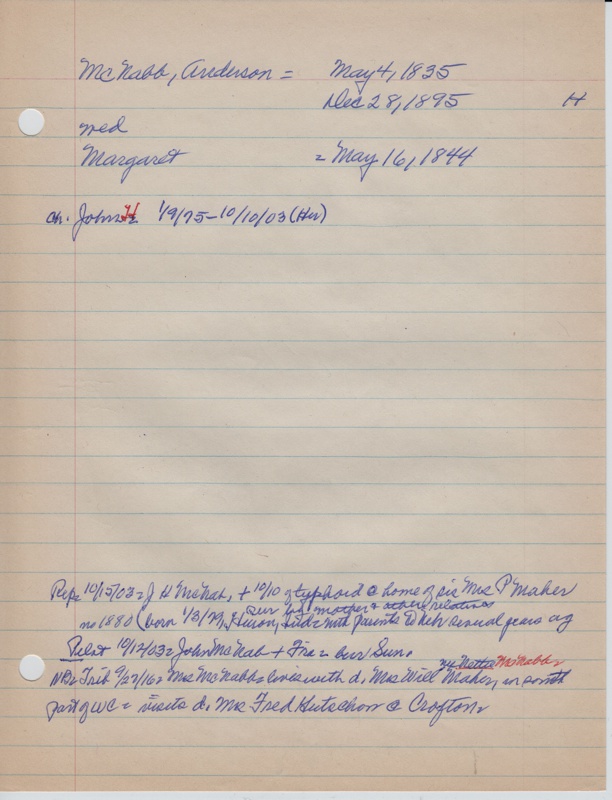 McNabb, Anderson = May 4, 1835
Dec 28, 1895 H
wed
Margaret = May 16, 1844
ch. John H 1/9/75 - 10/10/03 (Her)
Rep= 10/15/03= J H McNab, + 10/10 of typhoid @ home of sis Mrs P Maher
sur by mother + other relatives
no 1880 (born 1/3/79, Huron, with parents to Neb several years ag
Pilot 10/12/03= John McNab + Fri = bur Sun.
McNabb
NB= Trib 9/27/16= Mrs McNabb= lives with d. Mrs Will Maher, in south
part of WC = visits d. Mrs Fred Hutschon @ Crofton=